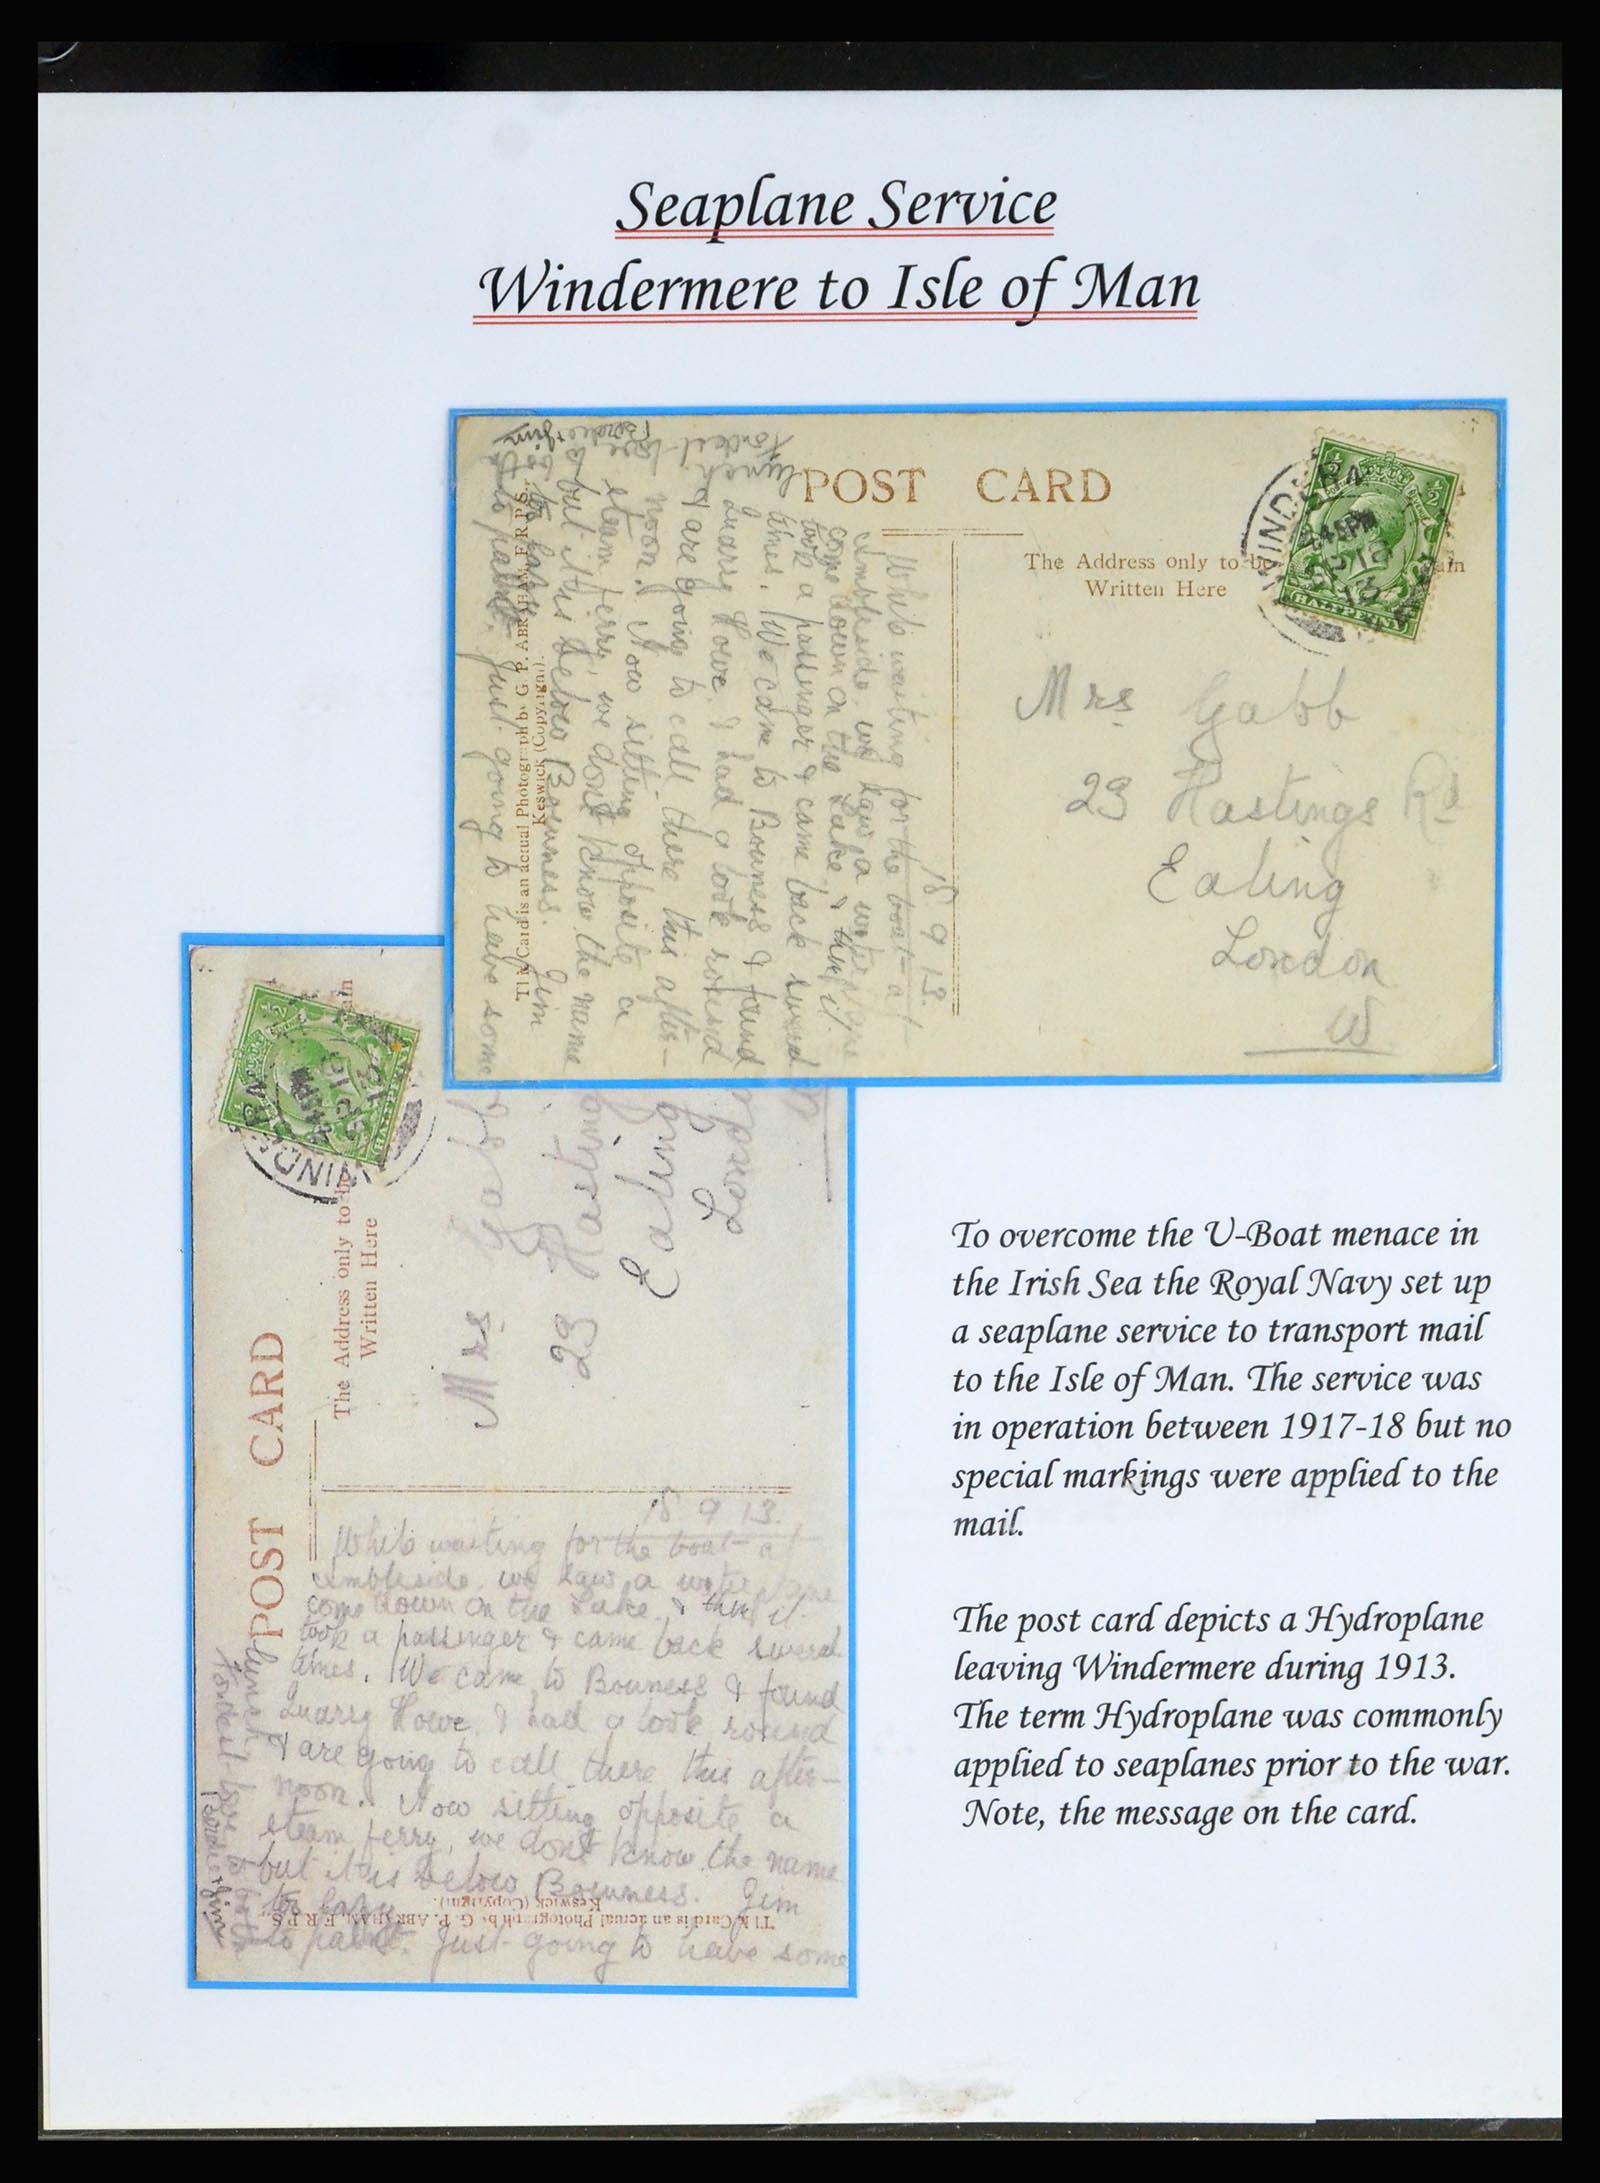 Seaplane Service
Windermere to Isle of Man
POST CARD
The Address only to be
Written Here
HALFPENNY
18 9 13.
While waiting for the boat at
Ambleside. we saw a water plane
come down on the Lake, & then it
took a passenger & came back several
times. We came to Bowness & found
Quarry Howe. & had a look round
& are going to call there this after-
noon. Now sitting opposite a
steam ferry, we dont know the name
but it is below Bowness. Jim
too lazy
to paint. Just going to have some
lunch
Fondest love to both
Birdie & Jim
Card is an actual Photograph by G. P. ABRAHAM, F.R.P.S.,
Keswick (Copyright).
Mrs Gabb
23 Hastings Rd
Ealing
London
W
POST CARD
The Address only to be
Written Here
HALFPENNY
Mrs Gabb
23 Hastin
Ealing
London
18 9 13.
While waiting for the boat at
Ambleside. we saw a water plane
come down on the Lake, & then it
took a passenger & came back several
times. We came to Bowness & found
Quarry Howe. & had a look round
& are going to call there this after-
noon. Now sitting opposite a
steam ferry, we dont know the name
but it is below Bowness. Jim
too lazy
to paint. Just going to have some
lunch
Fondest love to both
Birdie & Jim
Card is an actual Photograph by G. P. ABRAHAM, F.R.P.S.,
Keswick (Copyright).
To overcome the U-Boat menace in
the Irish Sea the Royal Navy set up
a seaplane service to transport mail
to the Isle of Man. The service was
in operation between 1917-18 but no
special markings were applied to the
mail.
The post card depicts a Hydroplane
leaving Windermere during 1913.
The term Hydroplane was commonly
applied to seaplanes prior to the war.
Note, the message on the card.